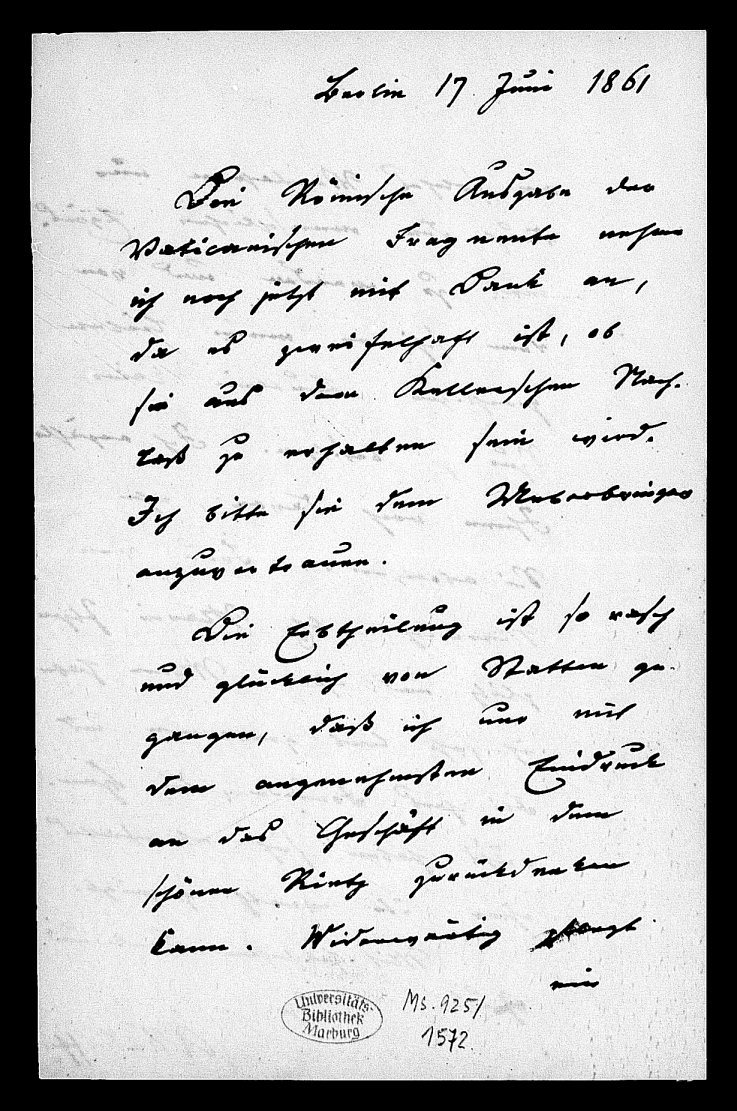 Berlin 17 Juni 1861
Die Römische Ausgabe der
Vaticanischen Fragmente nehme
ich noch jetzt mit Dank an,
da es zweifelhaft ist, ob
sie aus dem Kellerschen Nach-
laß zu erhalten sein wird.
Ich bitte sie dem Ueberbringer
anzuvertrauen.
Die Erbtheilung ist so rasch
und glücklich von Statten ge-
gangen, daß ich nur mit
dem angenehmsten Eindruck
an das Geschäft in dem
schönen Rietz zurückdenken
kann. Widerwärtig
mir
Universitäts-
Bibliothek
Marburg
Ms. 925/
1572